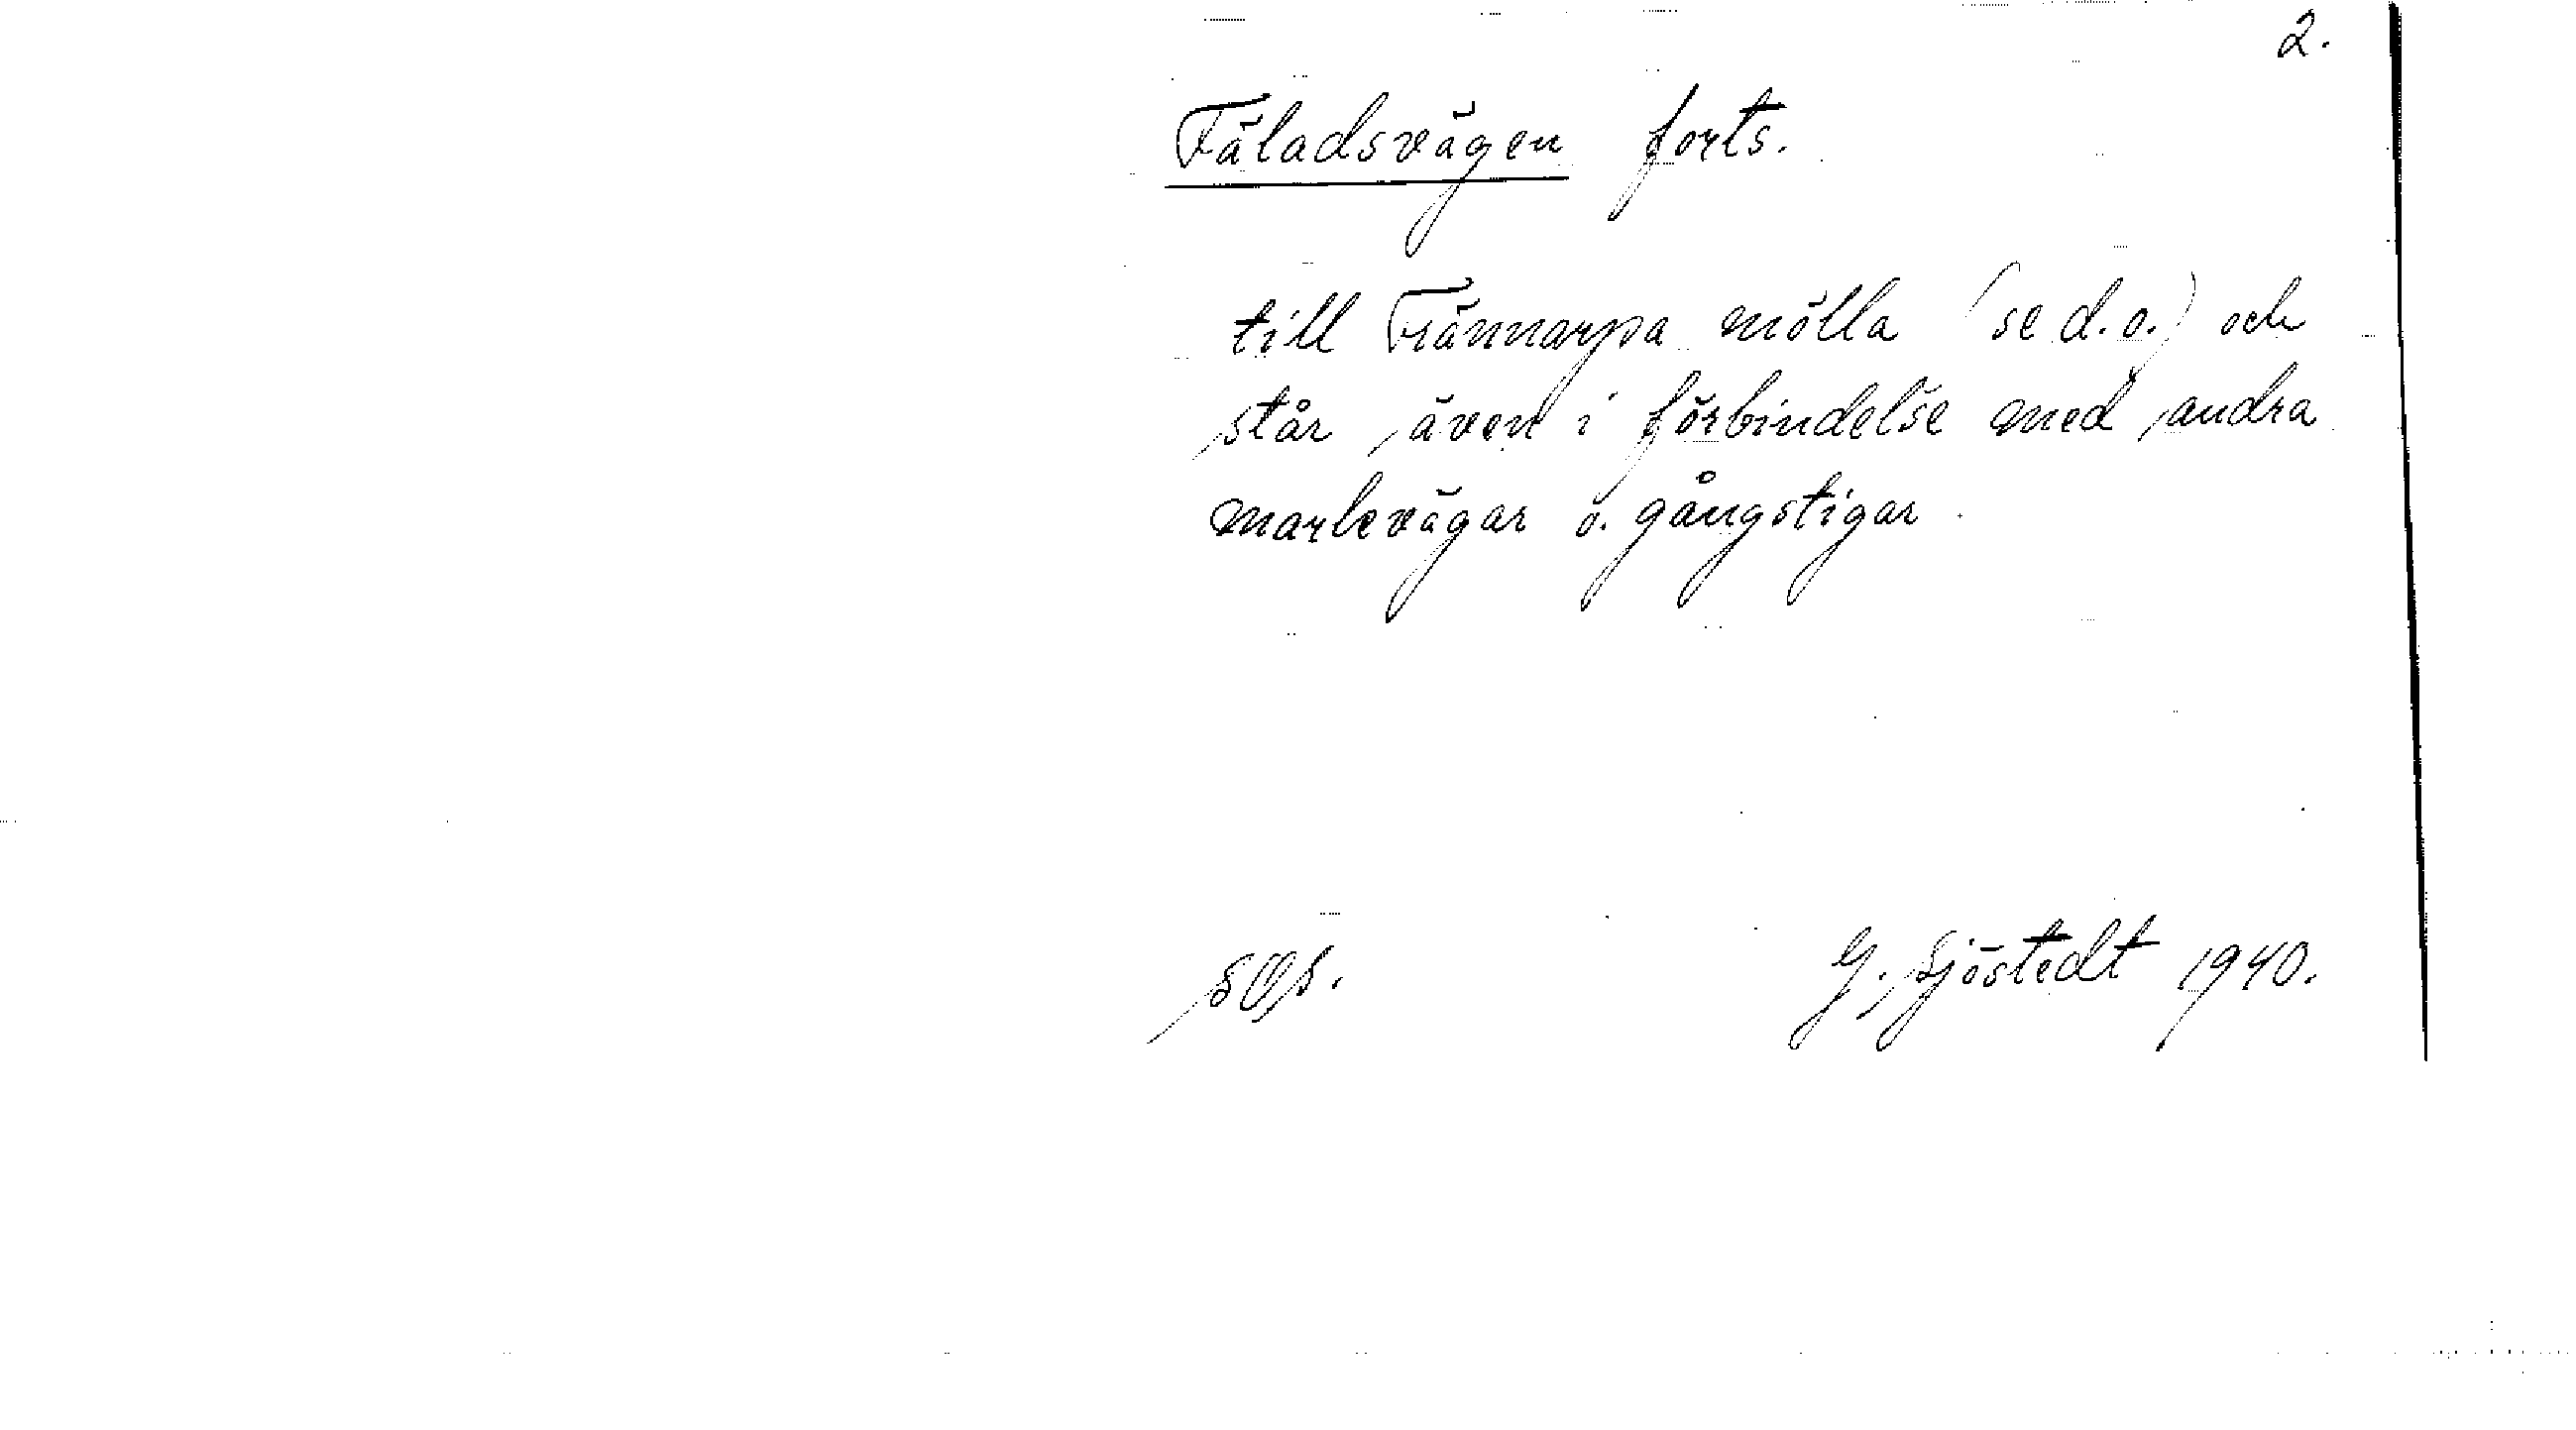 2.
Fäladsvägen forts.
till Frännarpa mölla (se d.o.) och
står även i förbindelse med andra
markvägar o. gångstigar.
G. Sjöstedt 1940.